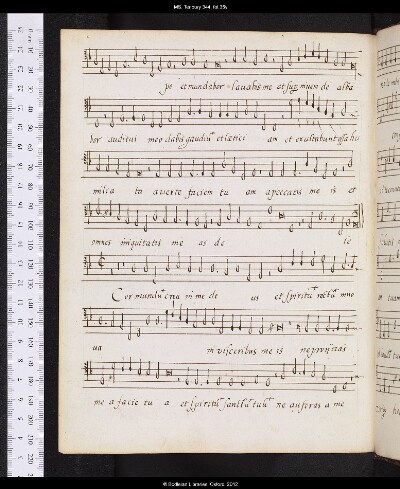 MS. Tenbury 344, fol. 35v
po et mundabor - lavabis me et sup nivem de alba
bor auditui meo dabis gaudiū et letici am et exultabunt ossa hu
milia tu averte faciem tu am a peccatis me is et
omnes iniquitatis me as de le
Cor mundū crea in me de us et spiritū rectū inno
va in visceribus me is ne proijcias
me a facie tu a et spiritū sanctū tuū ne auferas a me
© Bodleian Libraries, Oxford, 2012